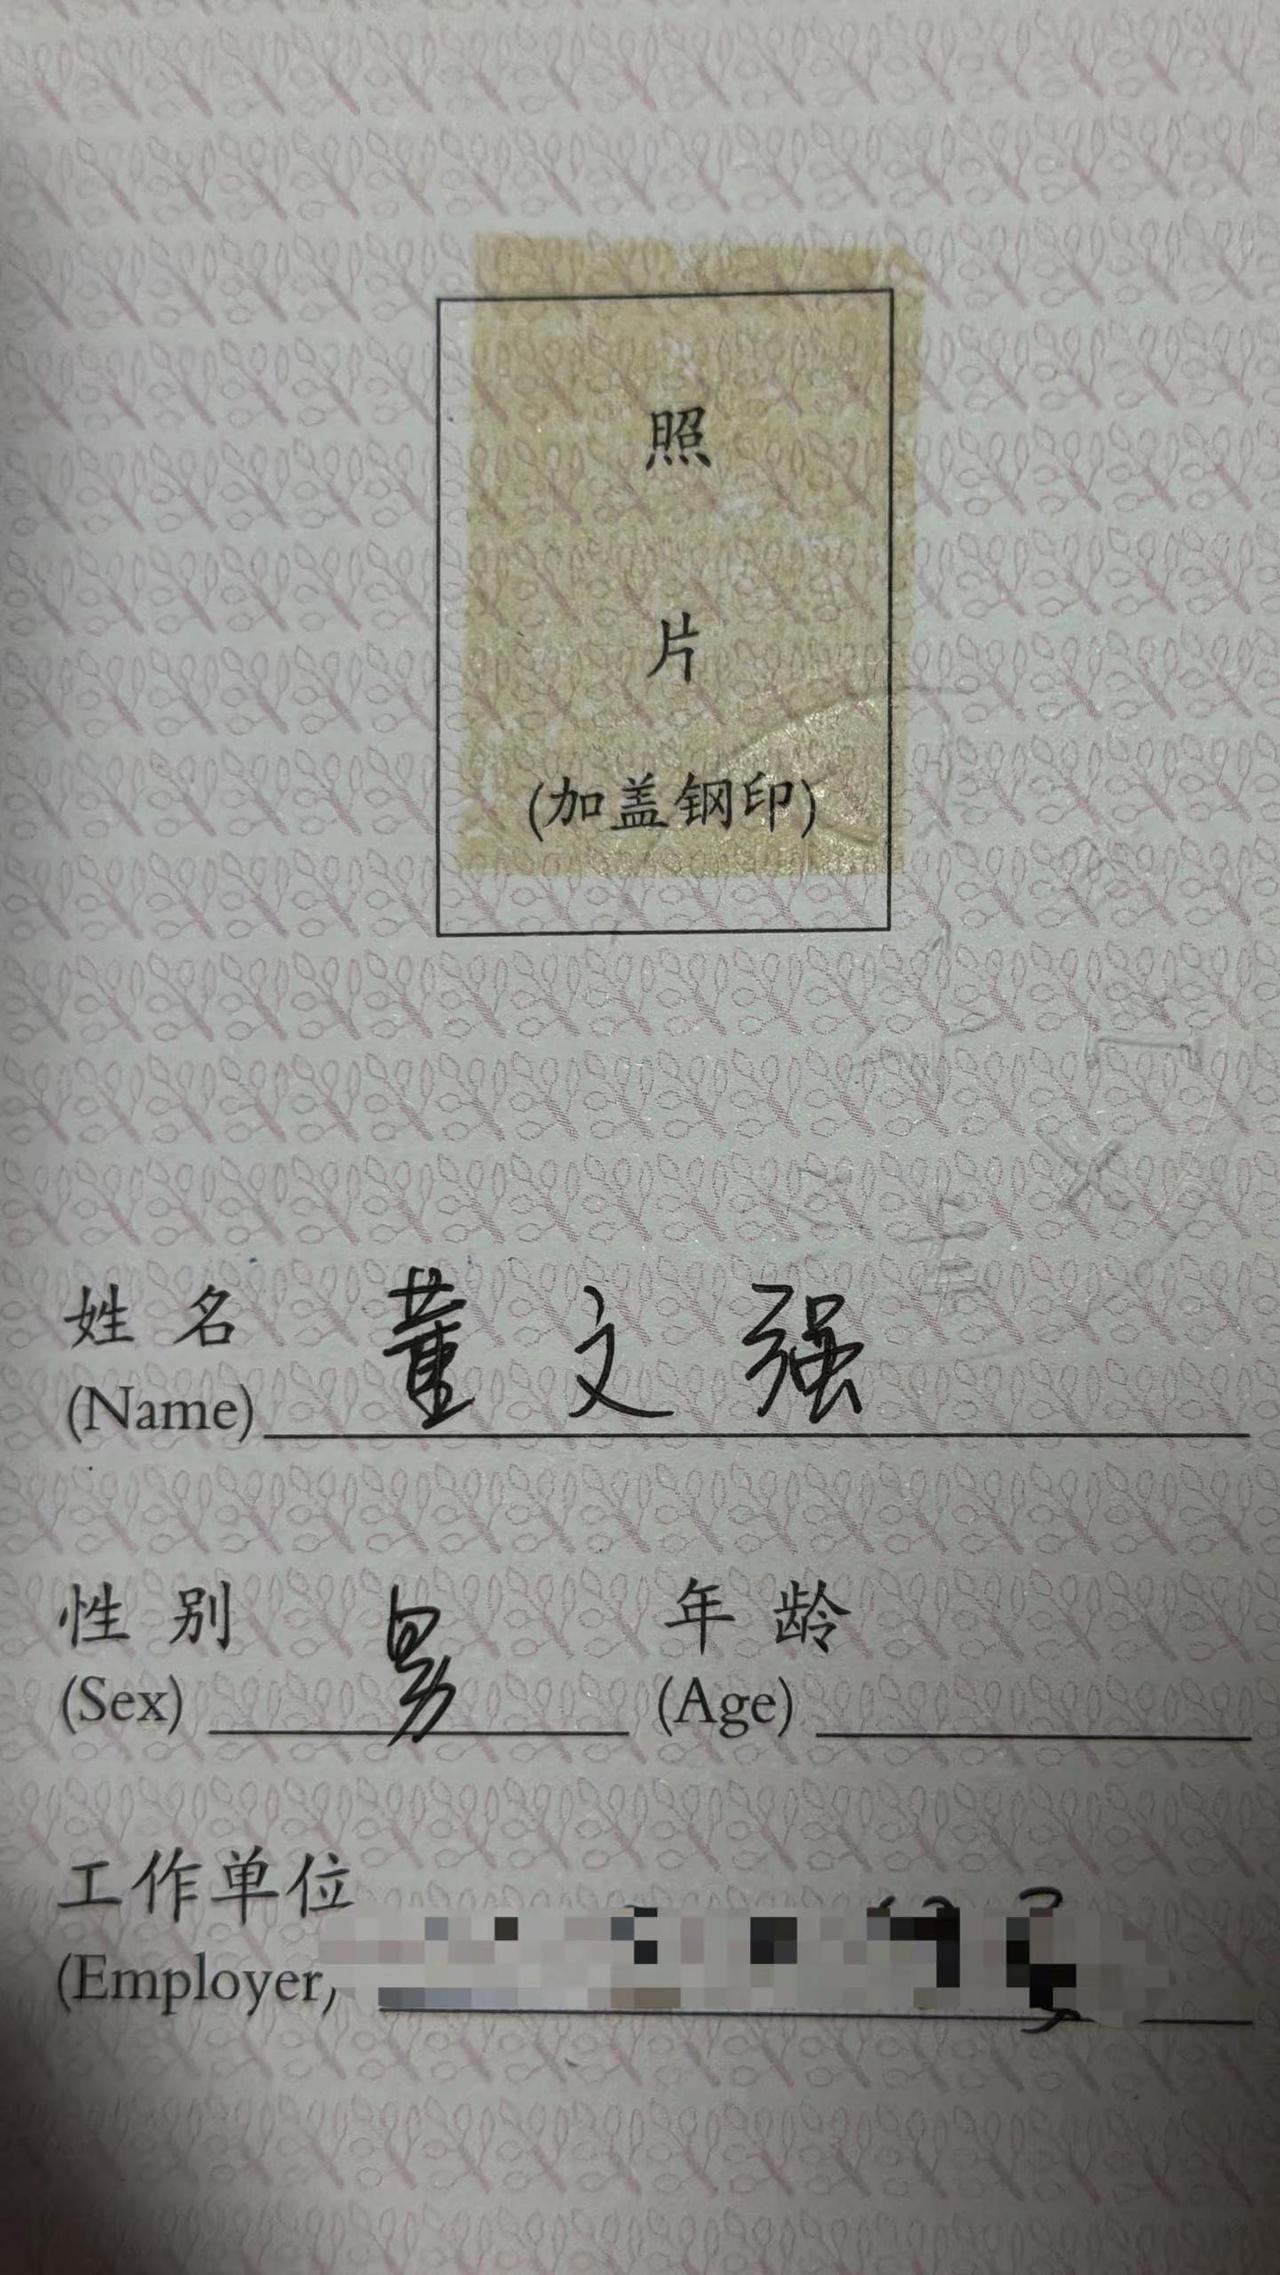 照
片
(加盖钢印)
姓名 董文强
(Name)
性别 男 年龄
(Sex) (Age)
工作单位
(Employer)